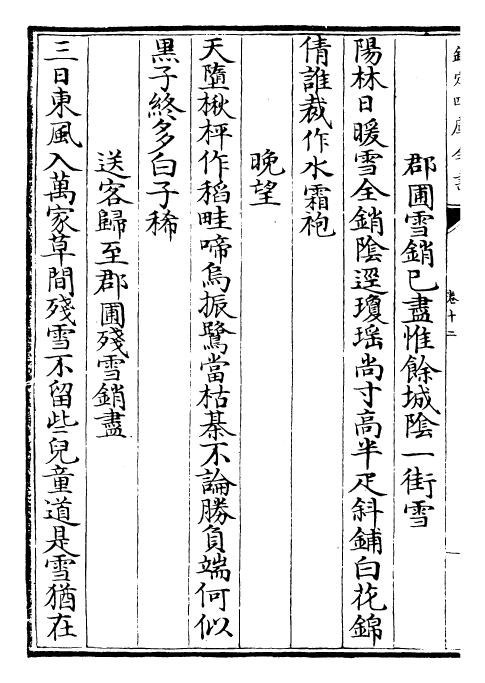 欽定四庫全書
卷十二
郡圃雪銷已盡惟餘城陰一街雪
陽林日暖雪全銷陰逕瓊瑶尚寸高半疋斜鋪白花錦
倩誰裁作水霜袍
晩望
天墮楸枰作稻畦啼烏振鷺當枯棊不論勝負端何似
黒子終多白子稀
送客歸至郡圃殘雪銷盡
三日東風入萬家草間殘雪不留些兒童道是雪猶在